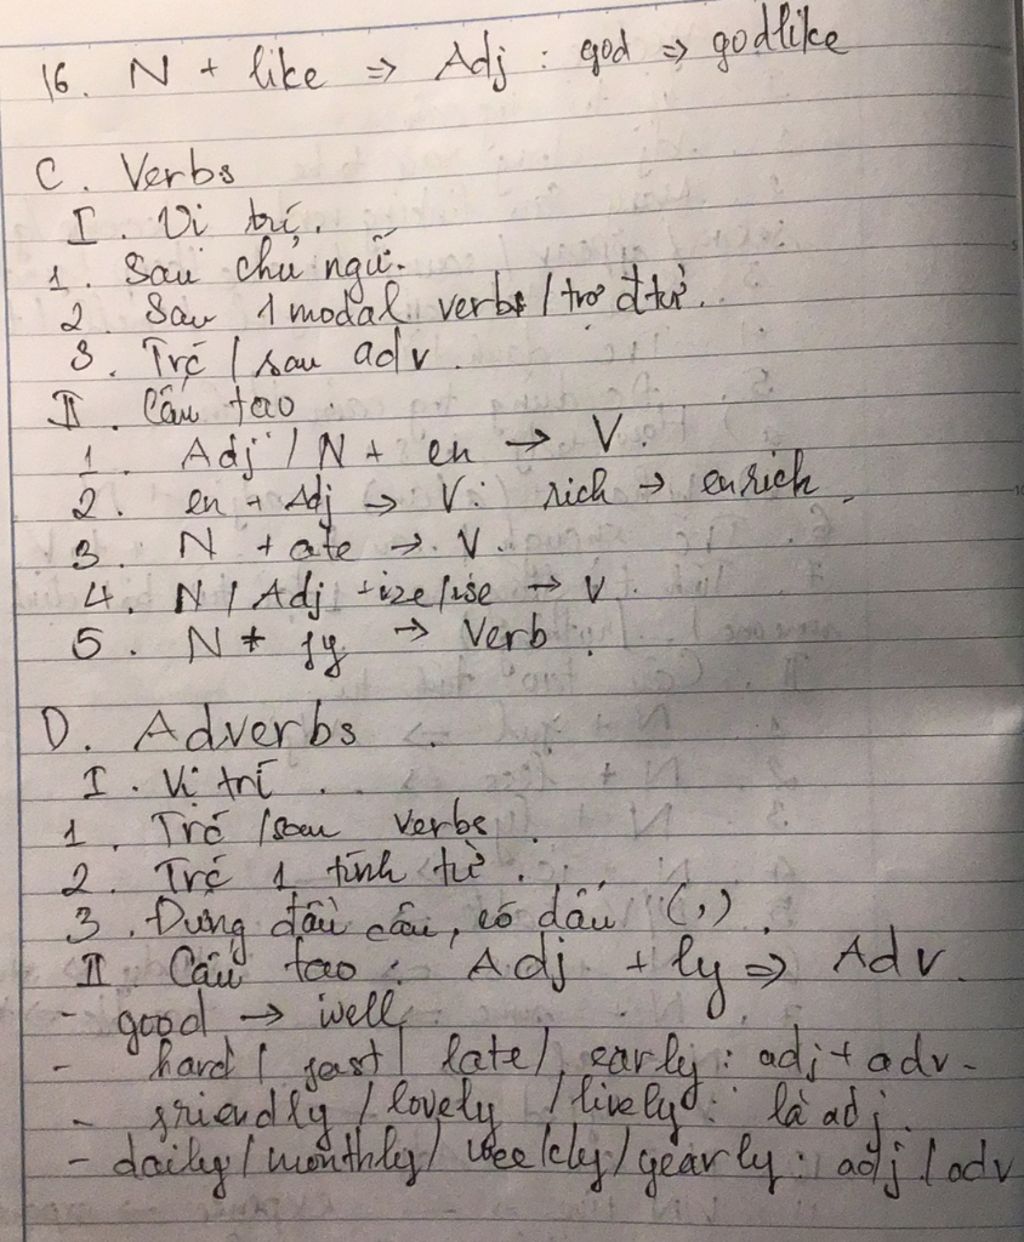 16. N + like => Adj : god => godlike
C. Verbs
I. Vị trí.
1. Sau chủ ngữ.
2. Sau 1 modal verbs / trợ đtừ.
3. Trc / sau adv.
II. Cấu tạo.
1. Adj / N + en → V.
2. en + Adj → V: rich → enrich.
3. N + ate → V.
4. N / Adj + ize/ise → V.
5. N + fy → Verb.
D. Adverbs.
I. Vị trí.
1. Trc / sau verbs.
2. Trc 1 tính từ.
3. Đứng đầu câu, có dấu (,).
II. Cấu tạo: Adj + ly => Adv.
- good → well
- hard / fast / late / early: adj + adv-
- friendly / lovely / lively: là adj.
- daily / monthly / weekly / yearly: adj / adv